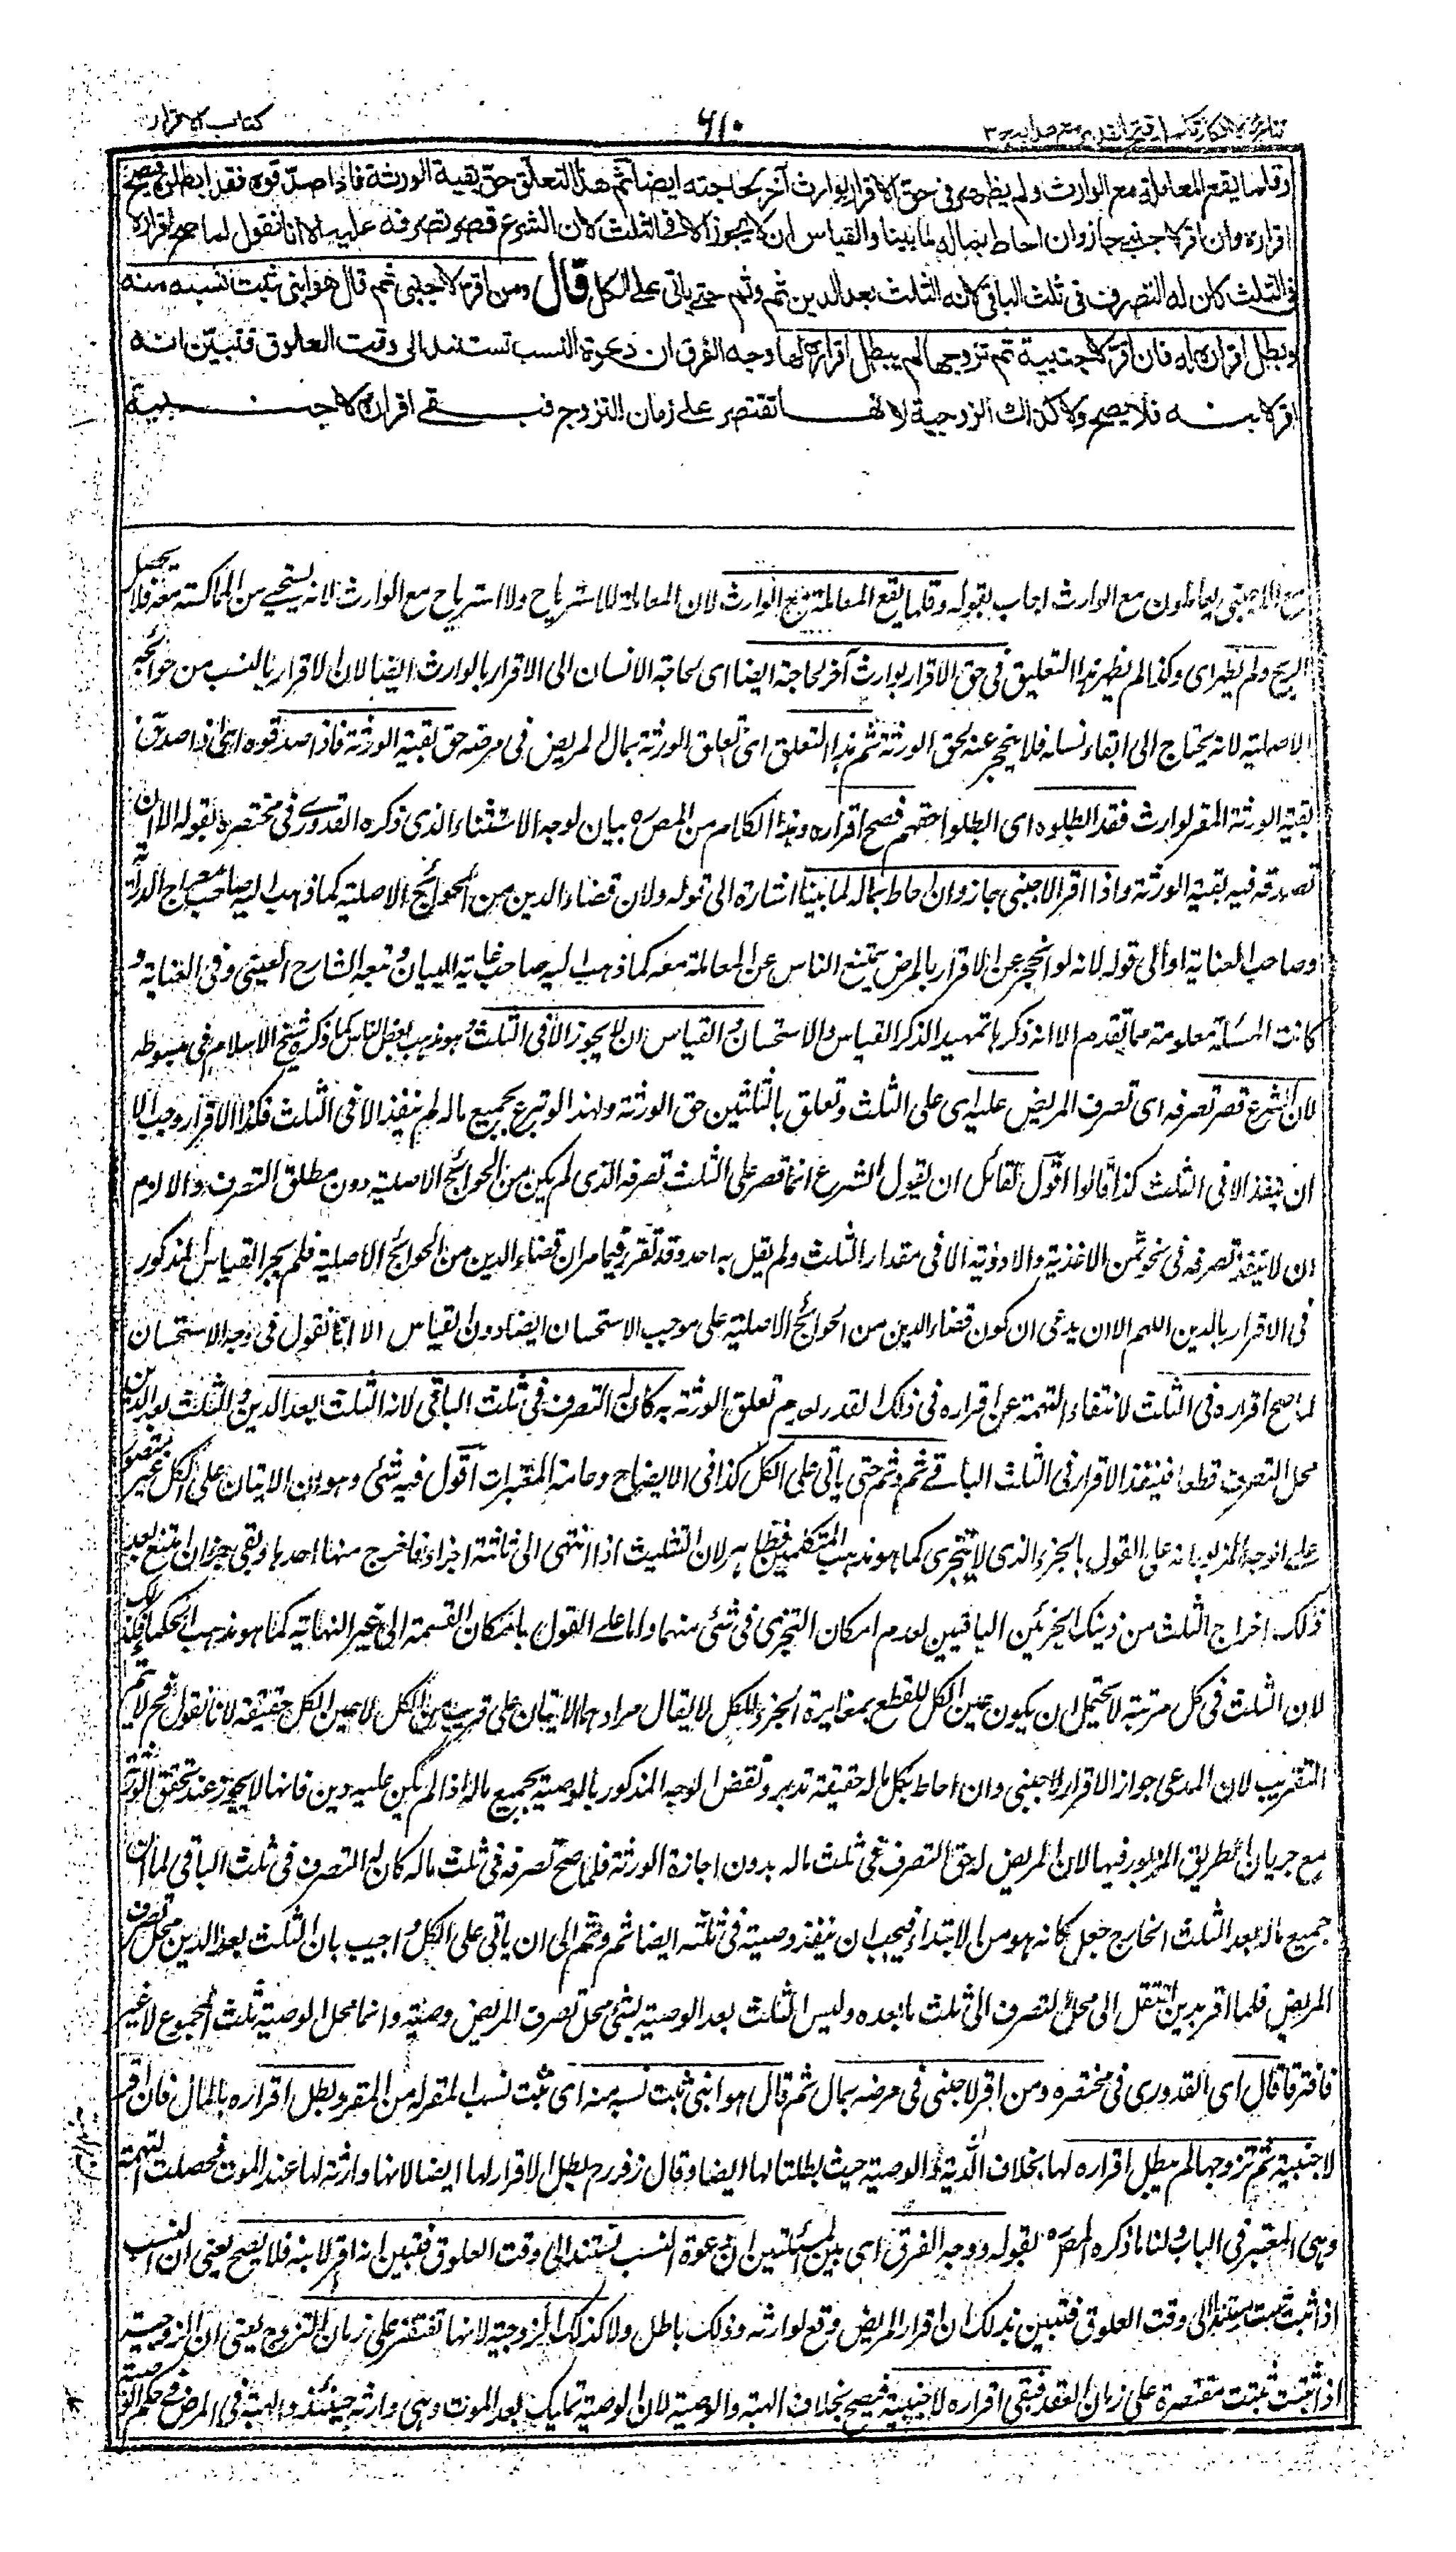 نتائج الافكار تكملة فتح القدير مع هداية ج ٣
٦١٠
كتاب الاقرار
وقلما يقع المعاملة مع الوارث ولم يظهر فى حق الاقرار بوارث آخر لحاجته ايضا ثم هذا التعلق حق بقية الورثة فاذا صدقوه فقد ابطلوه فيصح
اقراره وان اقر لاجنبى جاز وان احاط بماله لما بينا والقياس ان لا يجوز الا فى الثلث لان الشرع قصر تصرفه عليه الا انا نقول لما صح اقراره
فى الثلث كان له التصرف فى ثلث الباقى لانه الثلث بعد الدين ثم وثم حتى ياتى على الكل قال ومن اقر لاجنبى ثم قال هو ابنى ثبت نسبه منه
وبطل اقراره له فان اقر لاجنبية ثم تزوجها لم يبطل اقراره لها وجه الفرق ان دعوة النسب تستند الى وقت العلوق فتبين انه
اقر لابنه فلا يصح ولا كذلك الزوجية لانها تقتصر على زمان التزوج فبقى اقراره لاجنبية
مع الاجنبى يعاملون مع الوارث اجاب بقوله وقلما يقع المعاملة مع الوارث لان المعاملة للاسترباح ولا استرباح مع الوارث لانه يستحيى من المماكسة معه فلا يحصل
الربح ولم يظهر اى وكذا لم يظهر هذا التعليق فى حق الاقرار بوارث آخر لحاجته ايضا اى لحاجة الانسان الى الاقرار بالوارث ايضا لان الاقرار بالنسب من حوائجه
الاصلية لانه يحتاج الى ابقاء نسله فلا ينحجر عنه لحق الورثة ثم هذا التعلق اى تعلق الورثة بمال المريض فى مرضه حق بقية الورثة فاذا صدقوه اى اذا صدق
بقية الورثة المقر لوارث فقد ابطلوه اى ابطلوا حقهم فصح اقراره وهذا الكلام من المص ره بيان لوجه الاستثناء الذى ذكره القدورى فى مختصره بقوله الا ان
تصدقه فيه بقية الورثة واذا اقر لاجنبى جاز وان احاط بماله لما بينا اشارة الى قوله ولان قضاء الدين من الحوائج الاصلية كما ذهب اليه صاحب معراج الدراية
وصاحب العناية او الى قوله لانه لو انحجر عن الاقرار بالمرض يمتنع الناس عن المعاملة معه كما ذهب اليه صاحب غاية البيان وتبعه الشارح العينى وفى العناية و
كانت المسئلة معلومة مما تقدم الا انه ذكرها تمهيدا لذكر القياس والاستحسان والقياس ان لا يجوز الا فى الثلث وهو مذهب بعض الناس كما ذكره شيخ الاسلام فى مبسوطه
لان الشرع قصر تصرفه اى تصرف المريض عليه اى على الثلث وتعلق بالثلثين حق الورثة ولهذا لو تبرع بجميع ماله لم ينفذ الا فى الثلث فكذا الاقرار وجب الا
ان ينفذ الا فى الثلث كذا قالوا اقول لقائل ان يقول الشرع انما قصر على الثلث تصرفه الذى لم يكن من الحوائج الاصلية دون مطلق التصرف والا لزم
ان لا ينفذ تصرفه فى نحو ثمن الاغذية والادوية الا فى مقدار الثلث ولم يقل به احد وقد تقرر فيما مر ان قضاء الدين من الحوائج الاصلية فلم يجر القياس المذكور
فى الاقرار بالدين اللهم الا ان يدعى ان كون قضاء الدين من الحوائج الاصلية على موجب الاستحسان ايضا دون القياس الا انا نقول فى وجه الاستحسان
لما صح اقراره فى الثلث لانتفاء التهمة عن اقراره فى ذلك القدر لعدم تعلق الورثة به كان له التصرف فى ثلث الباقى لانه الثلث بعد الدين والثلث بعد الدين
محل التصرف قطعا فينفذ الاقرار فى الثلث الباقى ثم وثم حتى ياتى على الكل كذا فى الايضاح وعامة المعتبرات اقول فيه شئ وهو ان الاتيان على الكل غير متصور
على الوجه المزبور اما على القول بالجزء الذى لا يتجزى كما هو مذهب المتكلمين فظاهر لان التثليث اذا انتهى الى ثلثة اجزاء فاخرج منها احدها وبقى جزان امتنع بعد
ذلك اخراج الثلث من ذينك الجزئين الباقيين لعدم امكان التجزى فى شئ منهما واما على القول بامكان القسمة الى غير النهاية كما هو مذهب الحكماء فكذلك
لان الثلث فى كل مرتبة لا يحتمل ان يكون عين الكل للقطع بمغايرة الجزء للكل لا يقال مرادهم الاتيان على قريب من الكل لا عين الكل حقيقة لانا نقول فح لا يتم
التقريب لان المدعى جواز الاقرار لاجنبى وان احاط بكل ماله حقيقة تدبر ونقض الوجه المذكور بالوصية بجميع ماله اذا لم يكن عليه دين فانها لا يجوز عند تحقق الورثة
مع جريان الطريق المزبور فيها لان المريض له حق التصرف فى ثلث ماله بدون اجازة الورثة فلما صح تصرفه فى ثلث ماله كان له التصرف فى ثلث الباقى لما ان
جميع ماله بعد الثلث الخارج جعل كانه هو من الابتداء فيجب ان ينفذ وصيته فى ثلثه ايضا ثم وثم الى ان ياتى على الكل واجيب بان الثلث بعد الدين محل تصرف
المريض فلما اقر بدين انتقل الى محل التصرف الى ثلث ما بعده وليس الثلث بعد الوصية بشئ محل تصرف المريض وصية وانما محل الوصية ثلث المجموع لا غير
فافترقا قال اى القدورى فى مختصره ومن اقر لاجنبى فى مرضه بمال ثم قال هو ابنى ثبت نسبه منه اى ثبت نسب المقر له من المقر وبطل اقراره بالمال فان اقر
لاجنبية ثم تزوجها لم يبطل اقراره لها بخلاف الدية والوصية حيث بطلتا لها ايضا وقال زفر رح بطل الاقرار لها ايضا لانها وارثة لها عند الموت فحصلت التهمة
وهى المعتبر فى الباب ولنا ما ذكره المص ره بقوله ووجه الفرق اى بين المسئلتين ان دعوة النسب تستند الى وقت العلوق فتبين انه اقر لابنه فلا يصح يعنى ان النسب
اذا ثبت ثبت مستندا الى وقت العلوق فتبين بذلك ان اقرار المريض وقع لوارثه وذلك باطل ولا كذلك الزوجية لانها تقتصر على زمان التزوج يعنى ان الزوجية
اذا ثبتت ثبتت مقتصرة على زمان العقد فبقى اقراره لاجنبية فيصح بخلاف الهبة والوصية لان الوصية تمليك بعد الموت وهى وارثه حينئذ والهبة فى المرض فى حكم الوصية